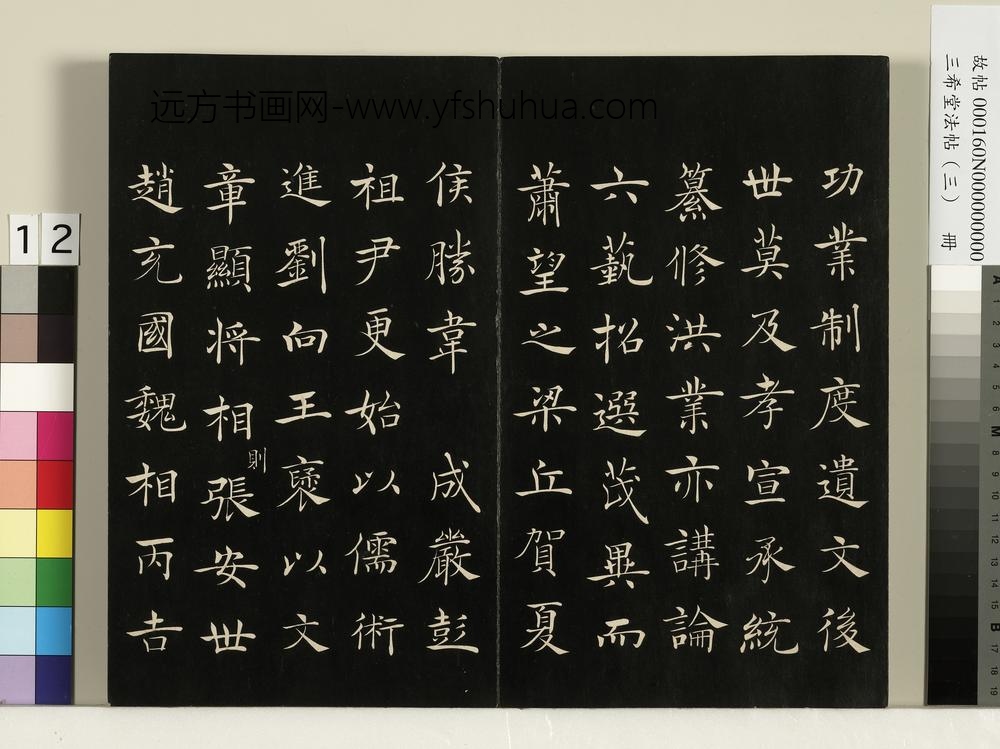 功業制度遺文後
世莫及孝宣承統
纂修洪業亦講論
六藝招選茂異而
蕭望之梁丘賀夏
侯勝韋 成嚴彭
祖尹更始以儒術
進劉向王褒以文
章顯將相張安世
則
趙充國魏相丙吉
远方书画网-www.yfshuhua.com
故帖 000160N000000000
三希堂法帖(三) 冊
12
A 1 2 3 4 5 6 M 8 9 10 11 12 13 14 15 B 17 18 19